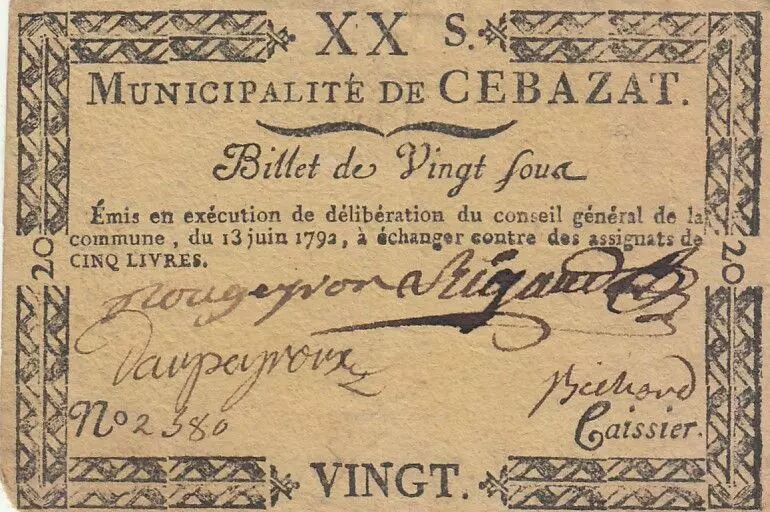 XX S.
MUNICIPALITÉ DE CEBAZAT.
Billet de Vingt sous
Émis en exécution de délibération du conseil général de la
commune, du 13 juin 1792, à échanger contre des assignats de
CINQ LIVRES.
20
20
Nougeyron Rigaud
Daupeyroux
Béchard
No 2580
Caissier.
VINGT.